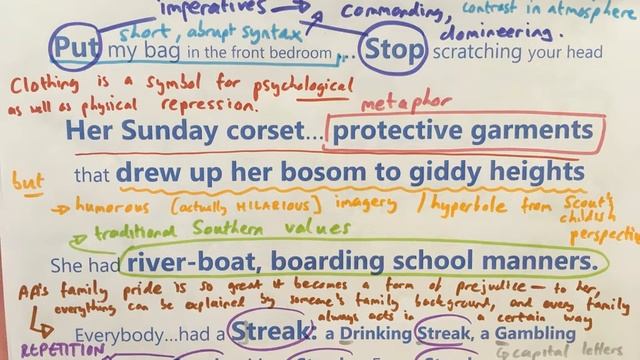 imperatives → commanding, contrast in atmosphere
short, abrupt syntax domineering.
Put my bag in the front bedroom ... Stop scratching your head
Clothing is a symbol for psychological
as well as physical repression.
metaphor
Her Sunday corset... protective garments
that drew up her bosom to giddy heights
but
→ humorous [actually HILARIOUS] imagery / hyperbole from Scout's
childish
perspective
→ traditional Southern values
She had river-boat, boarding school manners.
AA's family pride is so great it becomes a form of prejudice – to her,
everything can be explained by someone's family background, and every family
always acts in a certain way
Everybody...had a Streak: a Drinking Streak, a Gambling
REPETITION
capital letters